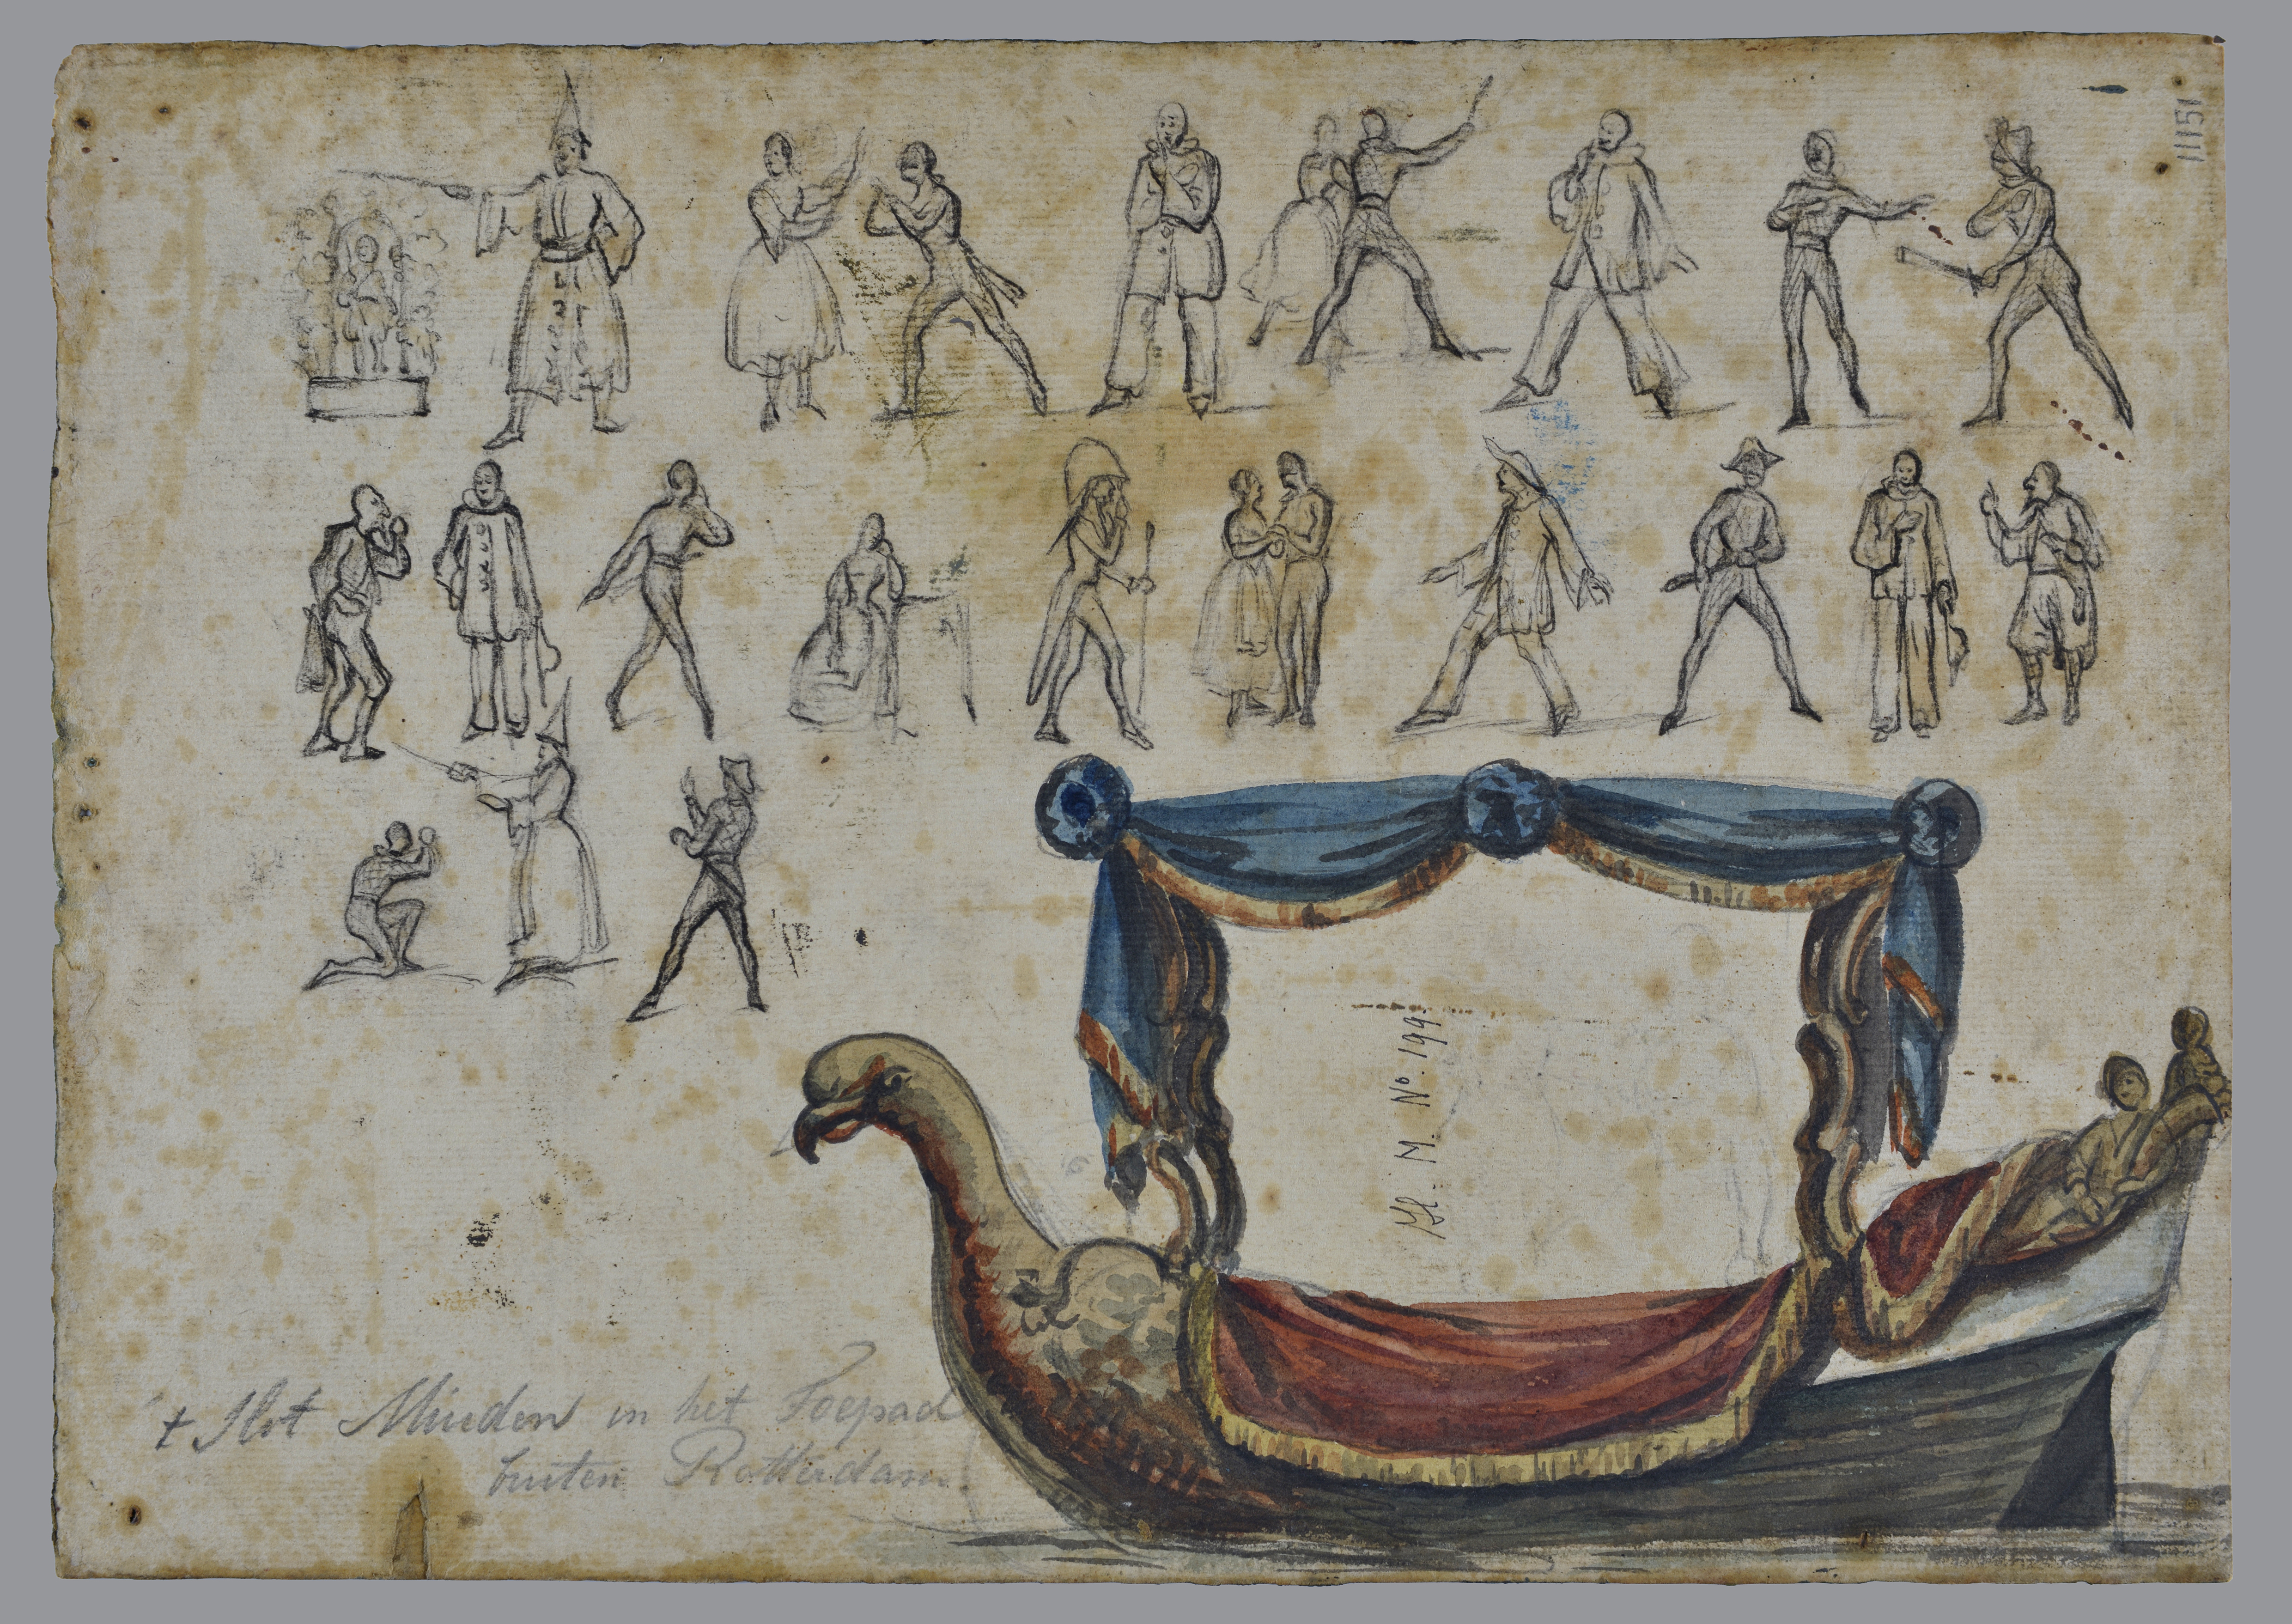 11151
Hl. M. No. 199
't Slot Minden in het Toepad
buiten Rotterdam